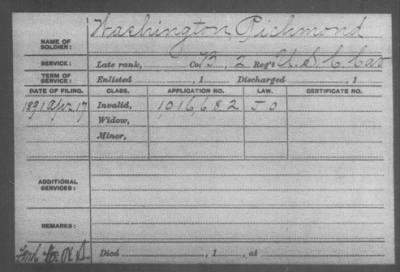 NAME OF SOLDIER: Washington Richmond
SERVICE: Late rank, Co. B, 2 Reg't U.S.C. Cav
TERM OF SERVICE: Enlisted , 1 Discharged , 1
DATE OF FILING. CLASS. APPLICATION NO. LAW. CERTIFICATE NO.
1891 Apr. 17 Invalid, 1,016,682 J O
Widow,
Minor,
ADDITIONAL SERVICES:
REMARKS:
Died , 1 , at